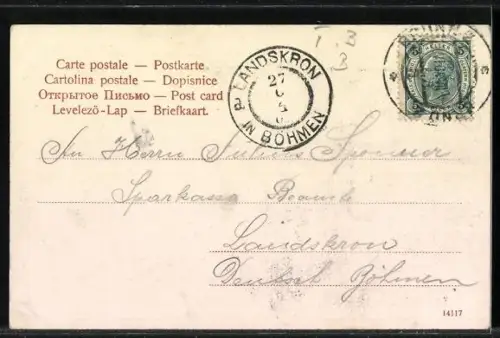 Carte postale — Postkarte
Cartolina postale — Dopisnice
Открытое Письмо — Post card
Levelező-Lap — Briefkaart.
LANDSKRON
27
IN BÖHMEN
T B
B
5 5
An Herrn Julius
Sparkassa Beamte
Landskron
Böhmen
14117